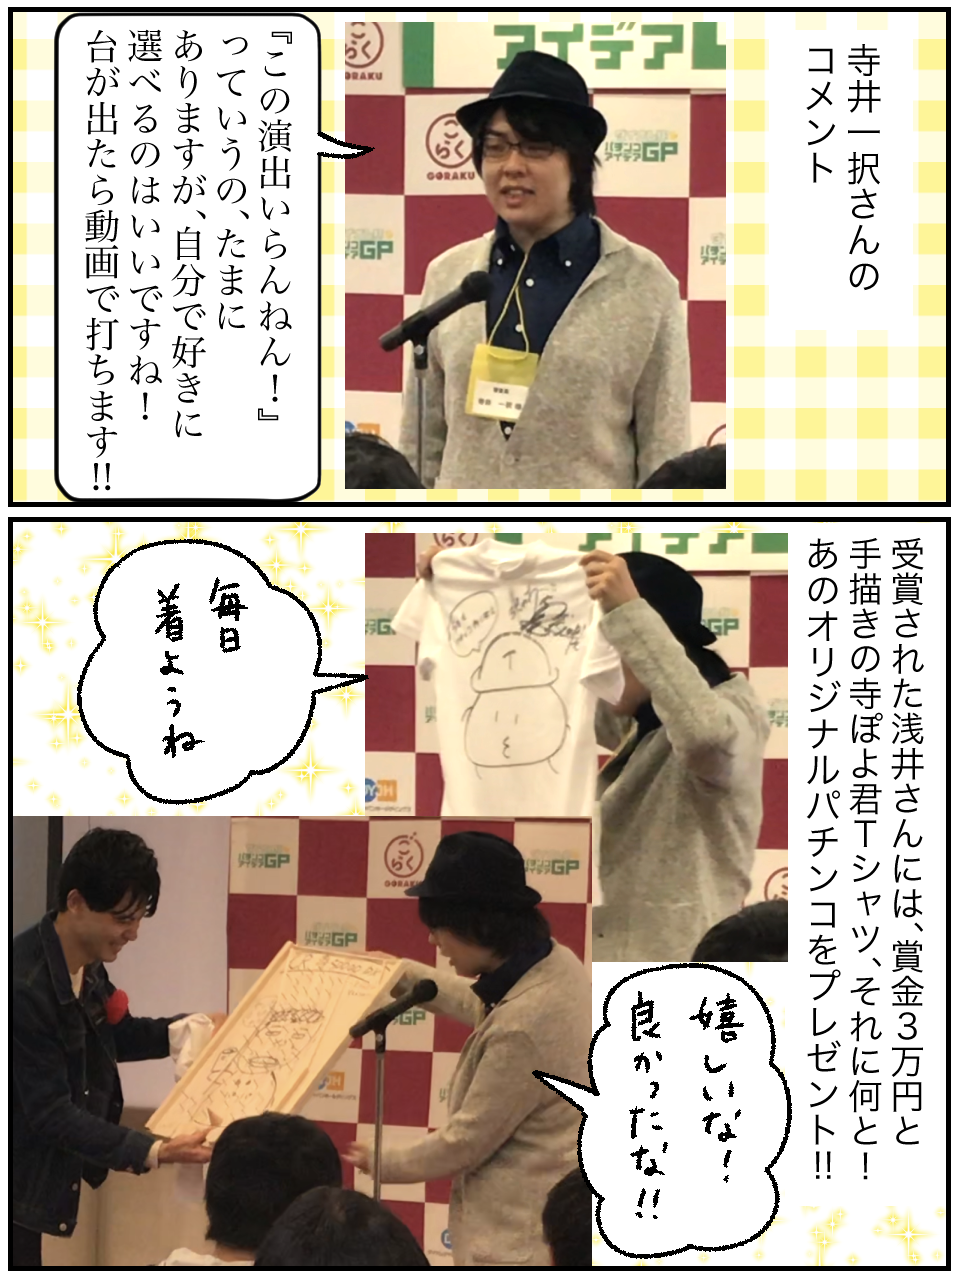 寺井一択さんの
コメント
『この演出いらんねん！』
っていうの、たまに
ありますが、自分で好きに
選べるのはいいですね！
台が出たら動画で打ちます!!
アイデアG
ごらく
GORAKU
ごらく
GORAKU
パチンコ
アイデアGP
受賞された浅井さんには、賞金３万円と
手描きの寺ぽよ君Tシャツ、それに何と！
あのオリジナルパチンコをプレゼント!!
毎日
着ようね
T
ごらく
GORAKU
アイデアGP
アイデアGP
嬉しいな！
良かったな!!